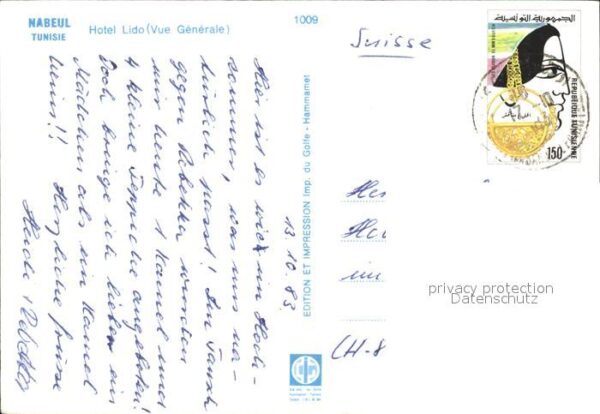 NABEUL
TUNISIE
Hotel Lido (Vue Générale)
1009
13.10.83
Hier ist es wie im Hoch-
sommer, was uns na-
türlich passt! Im Tausch
gegen Rebekka wurden
mir heute 1 Kamel und
4 kleine Teppiche angeboten!
Doch bringe ich lieber ein
Mädchen als ein Kamel
heim!! Herzliche Grüsse
Heidi + Rebekka
EDITION ET IMPRESSION Imp. du Golfe - Hammamet
Suisse
الجمهورية التونسية
REPUBLIQUE TUNISIENNE
150
CH-8
privacy protection
Datenschutz